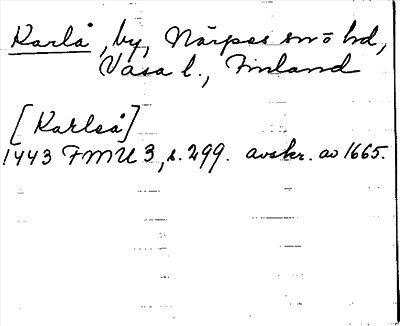 Karlå, by, Närpes sn o hd,
Vasa l., Finland
[Karlså]
1443 FMU 3, s. 299. avskr. av 1665.